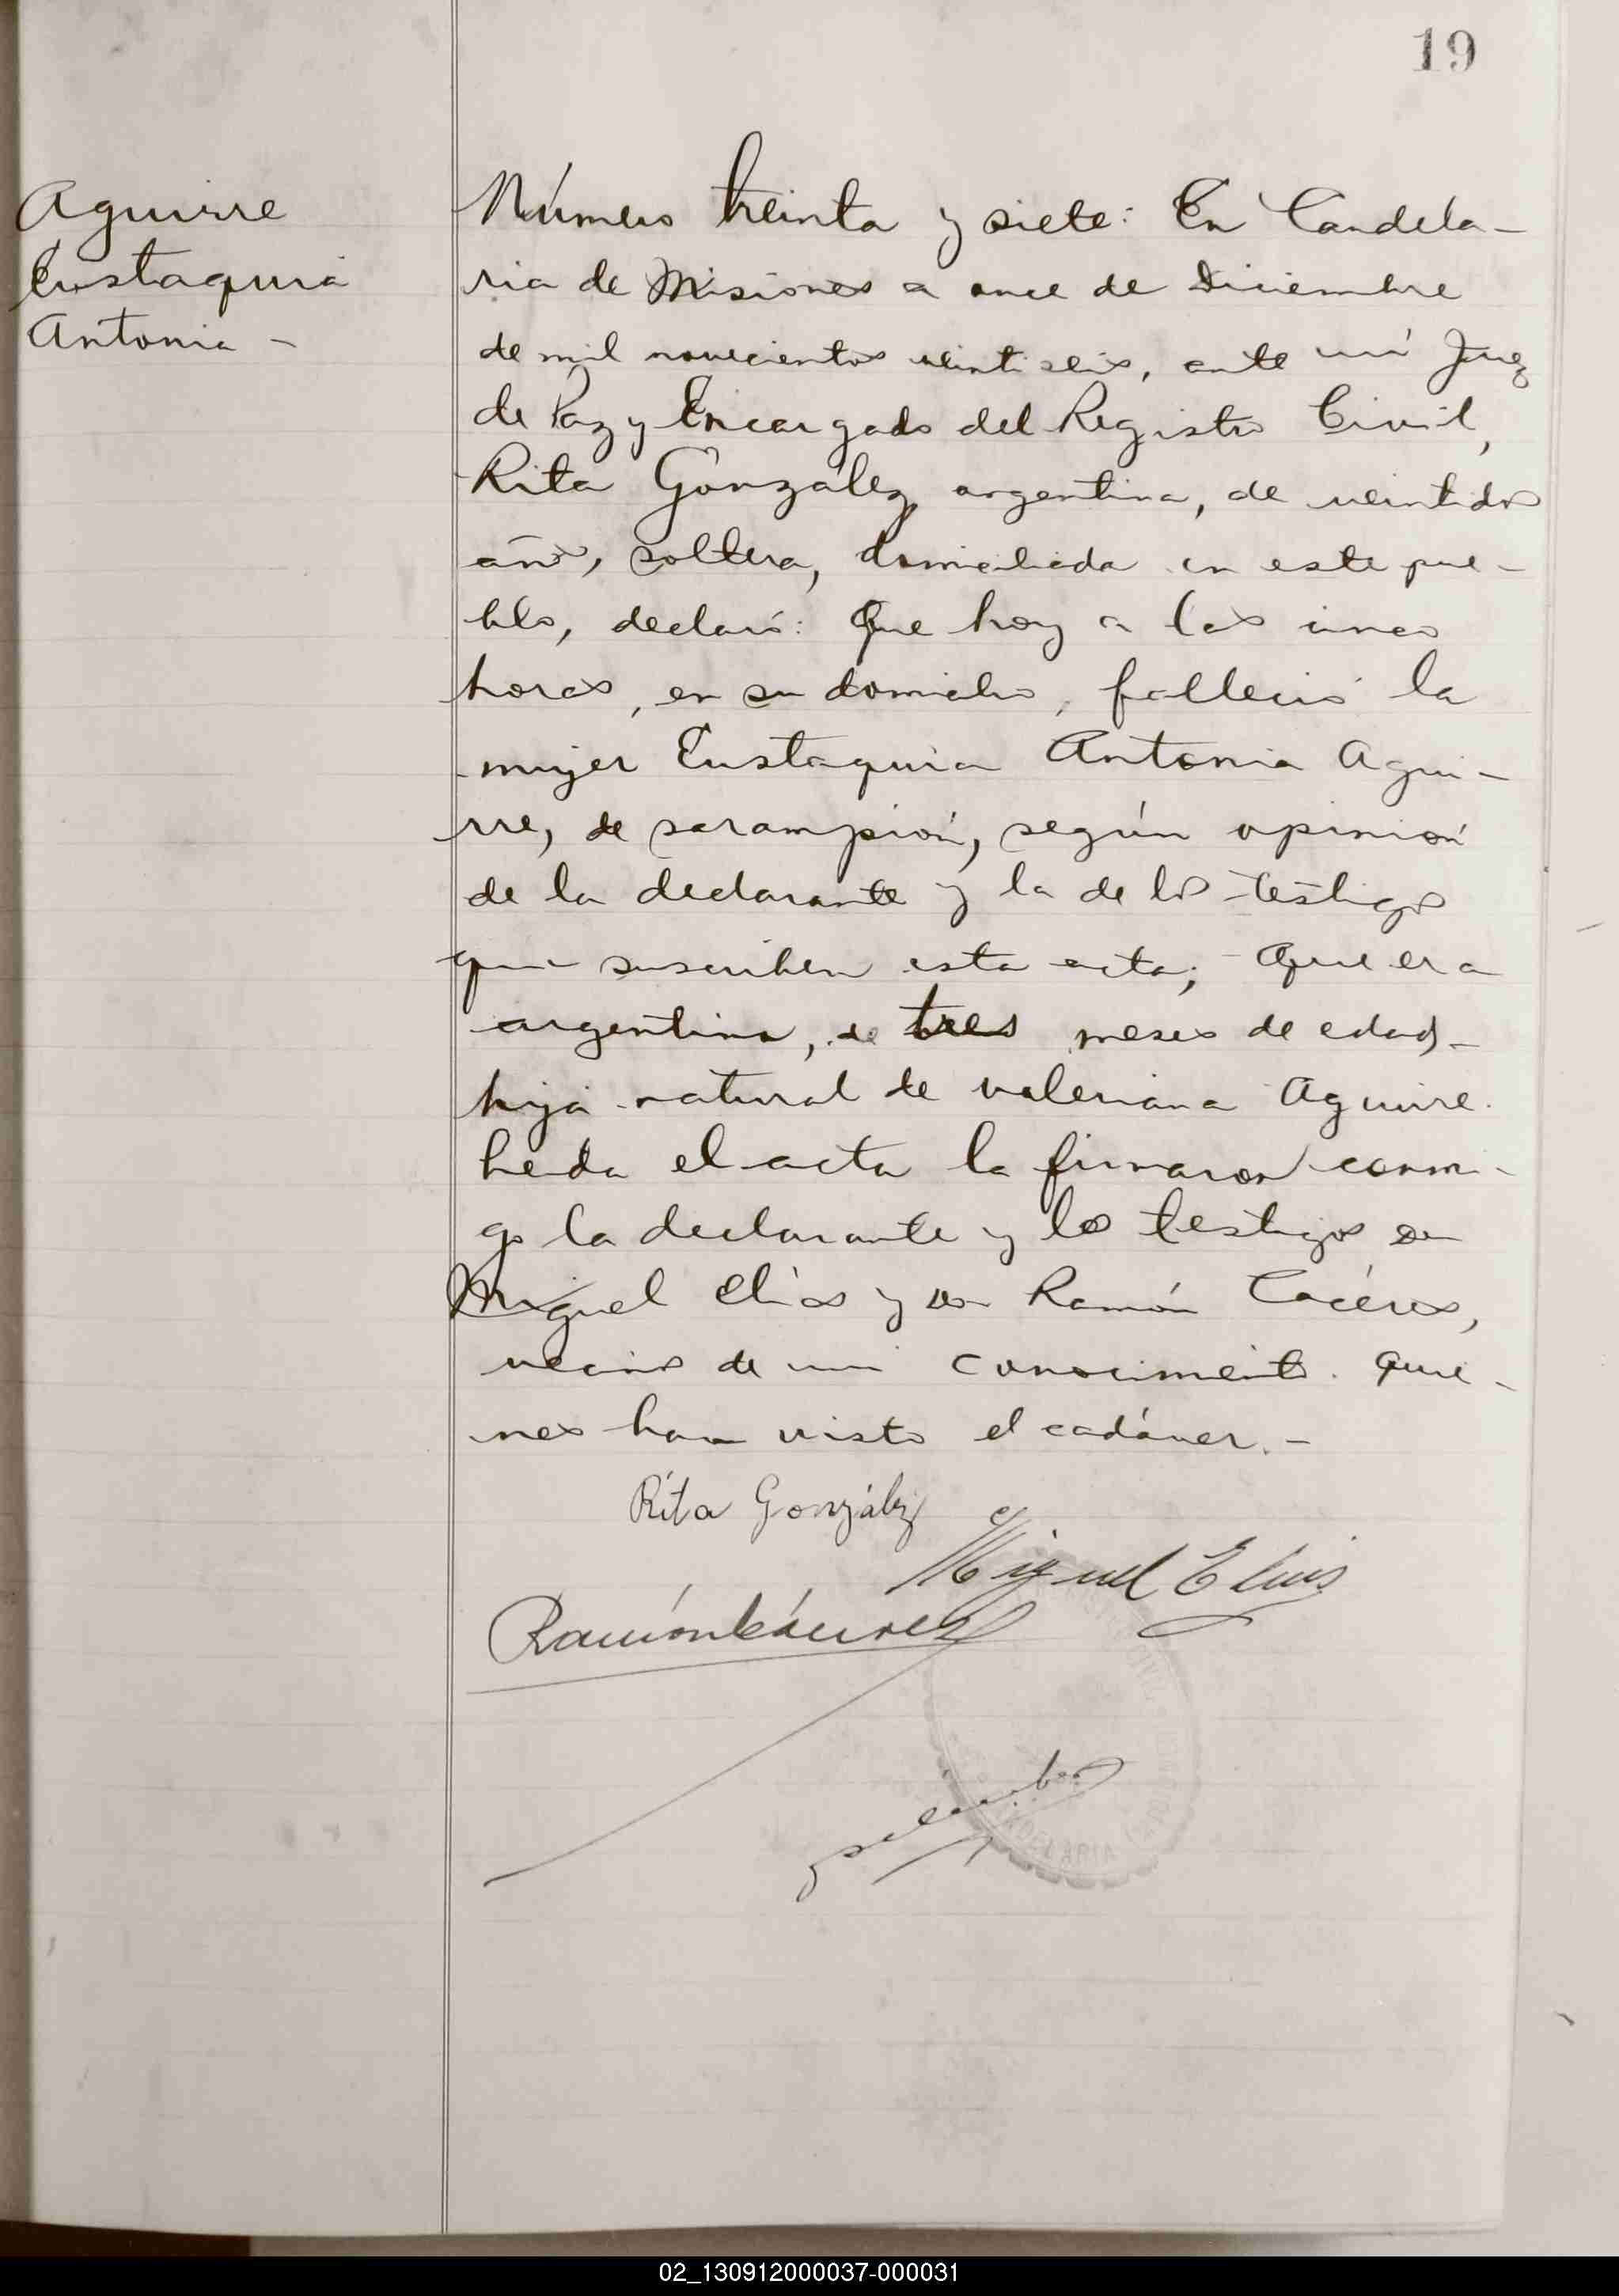 19
Aguirre
Eustaquia
Antonia -
Número treinta y siete: En Candela-
ria de Misiones a once de Diciembre
de mil novecientos veintiseis, ante mí Juez
de Paz y Encargado del Registro Civil,
Rita González, argentina, de veintidos
años, soltera, domiciliada en este pue-
blo, declaró: Que hoy a las cinco
horas, en su domicilio, falleció la
mujer Eustaquia Antonia Agui-
rre, de sarampión, según opinión
de la declarante y la de los testigos
que suscriben esta acta; Que era
argentina, de tres meses de edad,-
hija natural de Valeriana Aguirre.
Leida el acta la firmaron conmi-
go la declarante y los testigos don
Miguel Elías y don Ramón Cáceres,
vecinos de mi conocimiento. Quie-
nes han visto el cadáver.-
Rita González
Miguel Elias
Ramón Cáceres
CANDELARIA
02_130912000037-000031